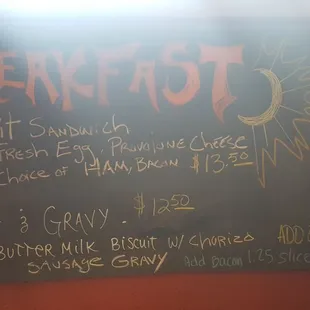 EAKFAST
it SANDWICH
FRESH Egg, PROVOLONE CHEESE
CHOICE of HAM, BACON $13.50
& GRAVY. $12.50
BUTTER MILK BISCUIT W/ CHORIZO ADD
SAUSAGE GRAVY Add Bacon 1.25 slice